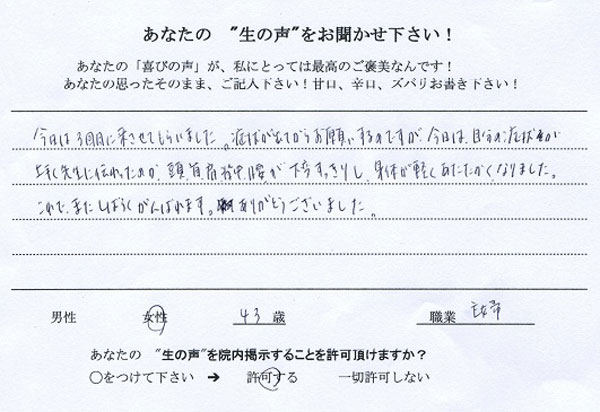 あなたの "生の声"をお聞かせ下さい！
あなたの「喜びの声」が、私にとっては最高のご褒美なんです！
あなたの思ったそのまま、ご記入下さい！甘口、辛口、ズバリお書き下さい！
今日は3回目に来させてもらいました。症状が出てからお願いするのですが、今日は、自分の症状が
上手く先生に伝わったのか、頭、首、肩、背中、腰が 大変すっきりし、身体が軽く あたたかくなりました。
これで、またしばらくがんばれます。ありがとうございました。
男性 女性 43 歳 職業 主婦
あなたの "生の声"を院内掲示することを許可頂けますか？
〇をつけて下さい ➔ 許可する 一切許可しない